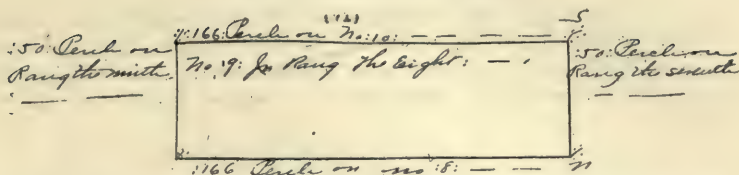 (12)
S
:166: Perch on No:10: — — — —
:50: Perch on
Rang the ninth.
No :9: In Rang the Eight: — .
:50: Perch on
Rang the seventh
:166 Perch on no :8: — — N